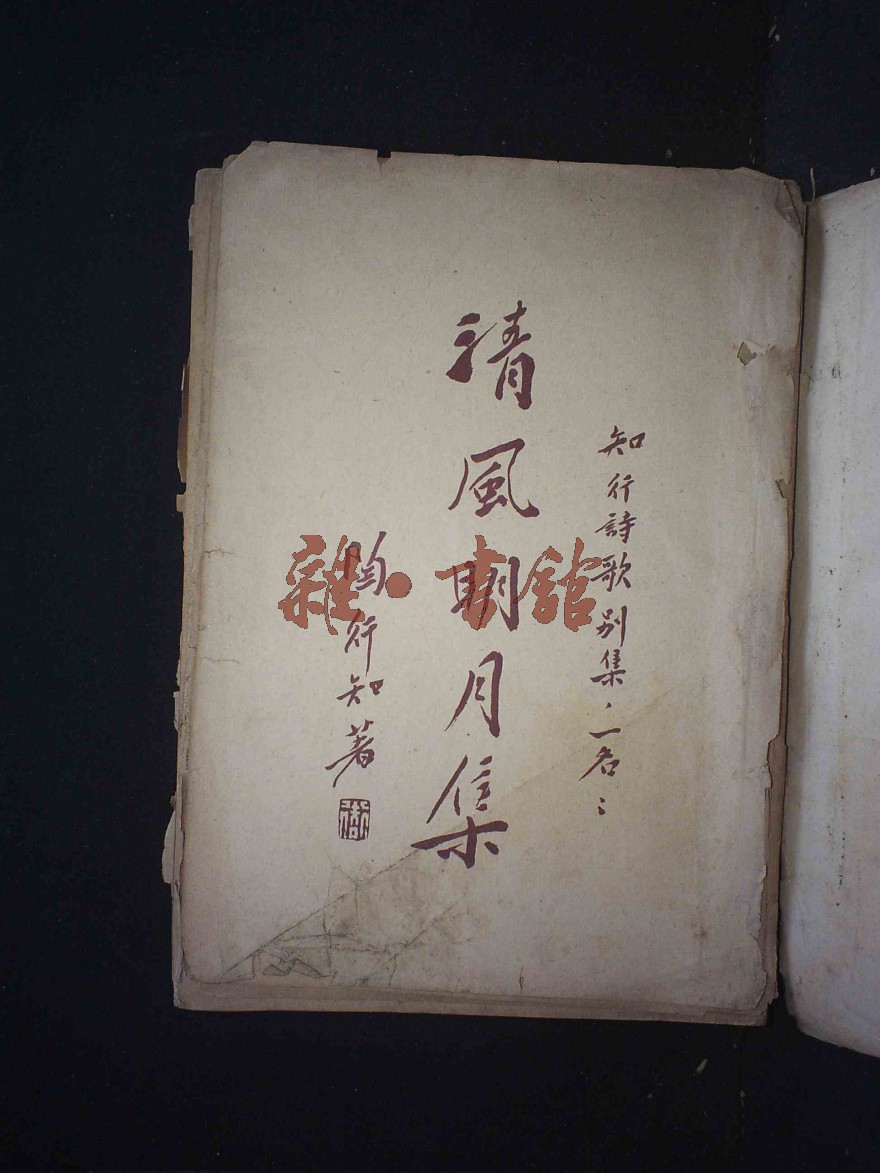 知行詩歌別集，一名：
清風明月集
陶行知著
雜·書館